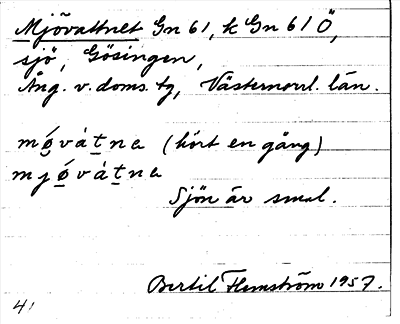 Mjövattnet Gn 61, k Gn 61 Ö,
sjö, Gösingen,
Ång. v. doms. tg, Västernorrl. län.
mǿvát̲na (hört en gång)
mjǿ̲vát̲na
Sjön är smal.
Bertil Flemström 1957.
41